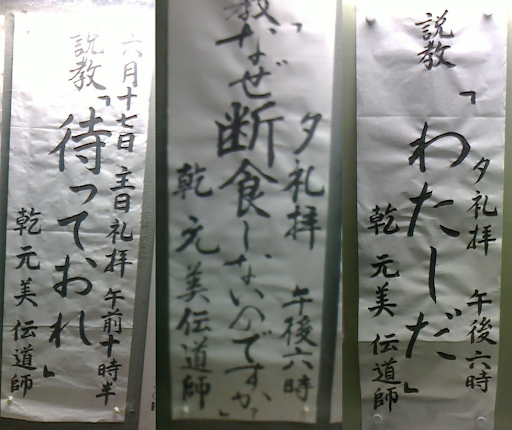 六月十七日 主日礼拝 午前十時半
説教「待っておれ」
乾 元美 伝道師
夕礼拝 午後六時
教「なぜ断食しないのですか?」
乾 元美 伝道師
夕礼拝 午後六時
説教「わたしだ」
乾 元美 伝道師